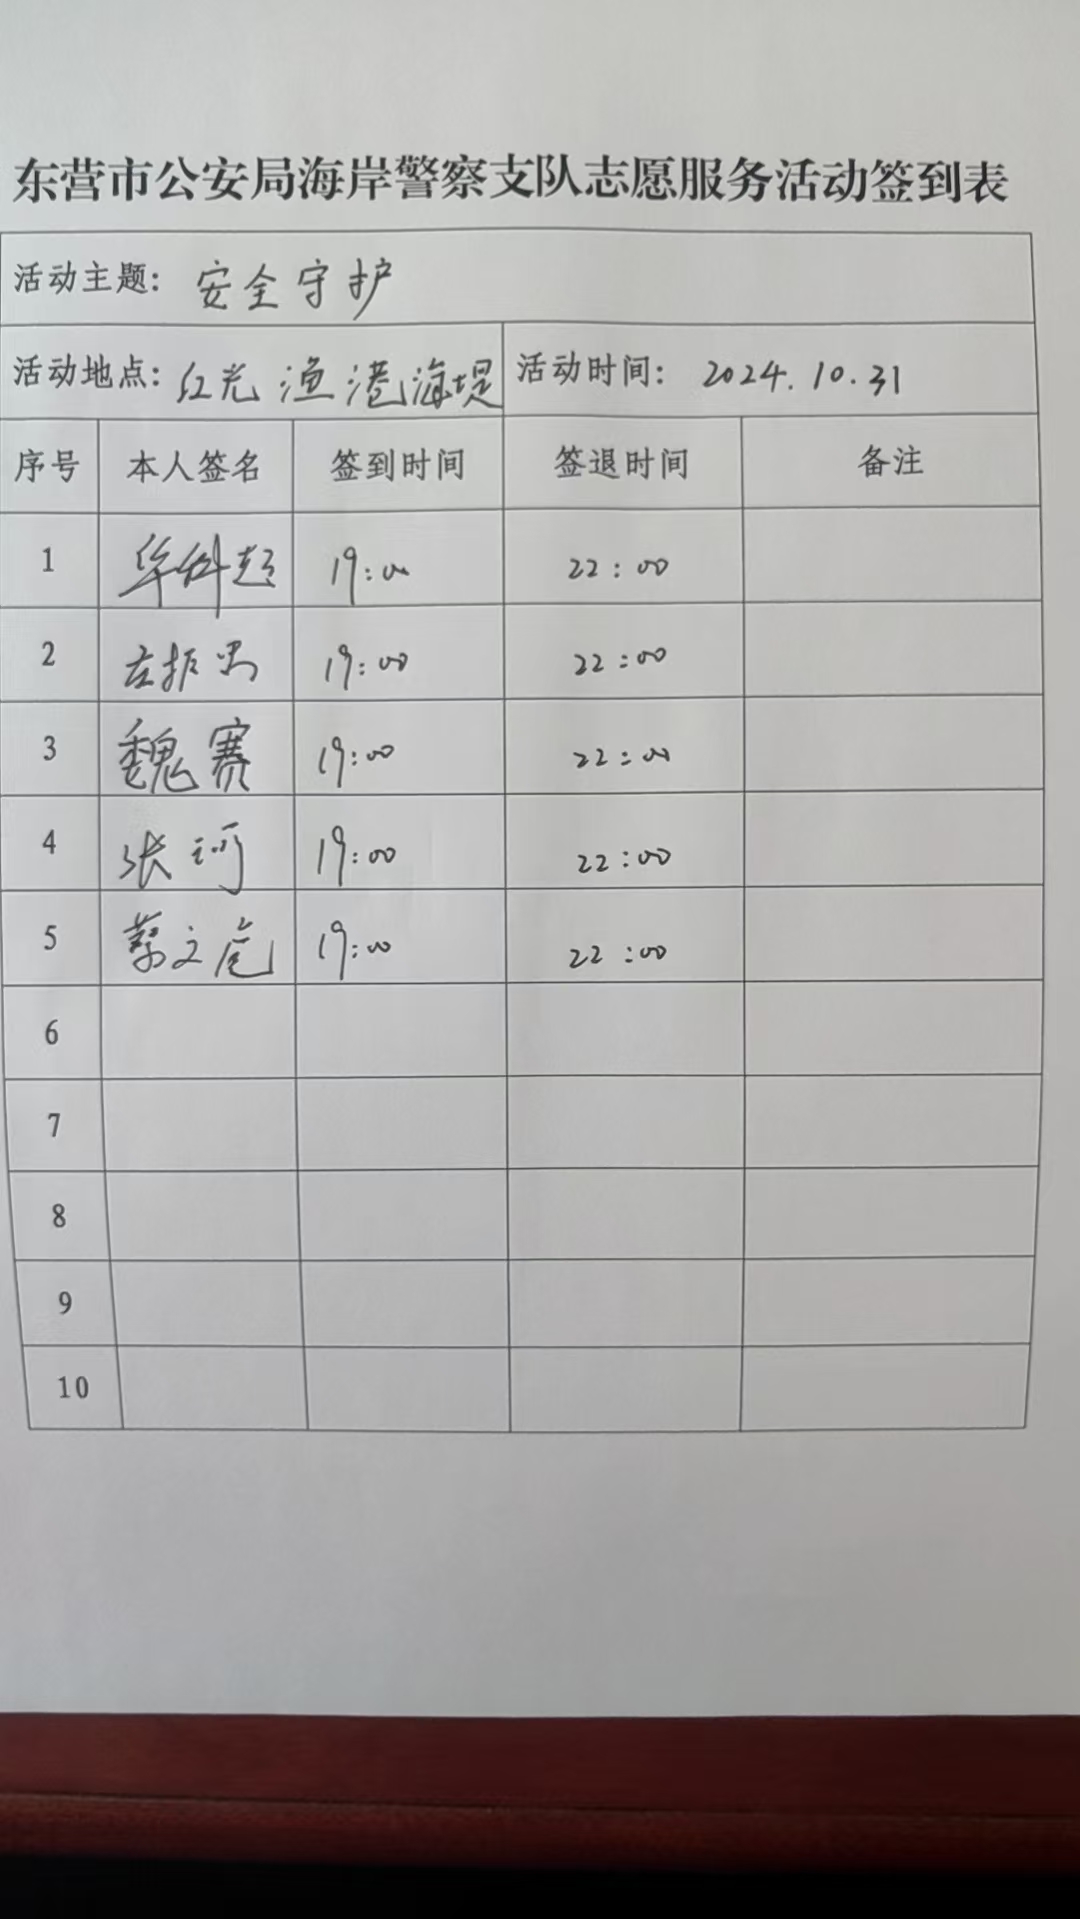 东营市公安局海岸警察支队志愿服务活动签到表
活动主题: 安全守护
活动地点: 红光渔港海堤 活动时间: 2024.10.31
序号 本人签名 签到时间 签退时间 备注
1 19:00 22:00
2 左振 19:00 22:00
3 魏赛 19:00 22:00
4 张 19:00 22:00
5 蔡文 19:00 22:00
6
7
8
9
10